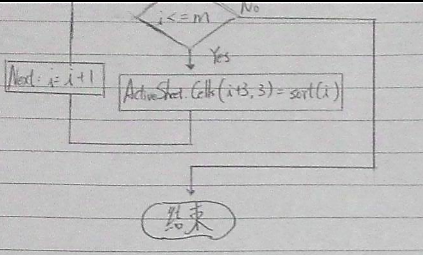 No
i<=m
Yes
Next: i=i+1
ActiveSheet.Cells(i+3,3)=sort(i)
結束